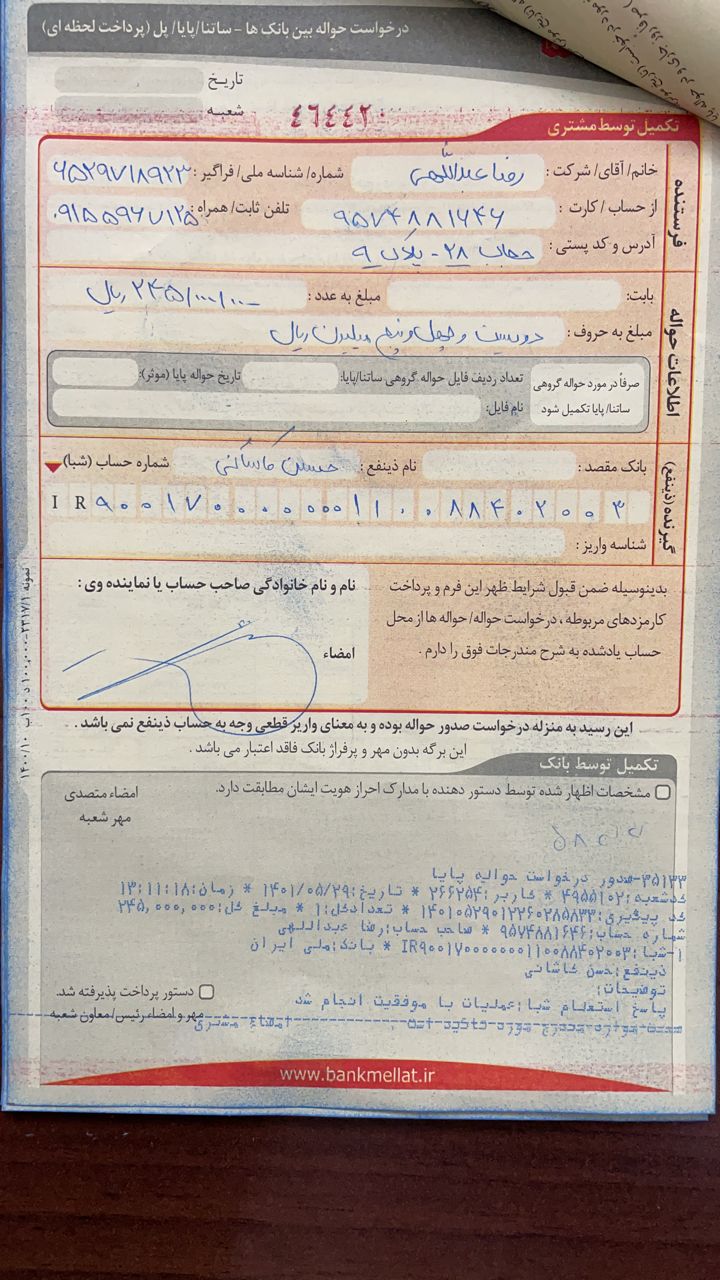 درخواست حواله بین بانک ها - ساتنا/پایا/ پل (پرداخت لحظه ای)
تاریخ
شعبه
٤٦٤٤٢٠
تکمیل توسط مشتری
فرستنده
خانم/ آقای/ شرکت: رضا عبداللهی شماره/ شناسه ملی/ فراگیر: ۶۵۲۹۷۱۸۹۲۳
از حساب / کارت: ۹۵۷۴۸۸۱۶۴۶ تلفن ثابت/ همراه: ۰۹۱۵۵۹۶۷۱۲۵
آدرس و کد پستی: حجاب ۲۸ - پلاک ۹
اطلاعات حواله
بابت: مبلغ به عدد: ۲۴۵/۰۰۰/۰۰۰ ریال
مبلغ به حروف: دویست و چهل و پنج میلیون ریال
صرفاً در مورد حواله گروهی ساتنا/ پایا تکمیل شود
تعداد ردیف فایل حواله گروهی ساتنا/پایا: تاریخ حواله پایا (موثر):
نام فایل:
گیرنده (ذینفع)
بانک مقصد: نام ذینفع: حسن کاشانی شماره حساب (شبا)
I R ۹۰۰۱۷۰۰۰۰۰۰۰۱۱۰۰۸۸۴۰۲۰۰۳
شناسه واریز:
بدینوسیله ضمن قبول شرایط ظهر این فرم و پرداخت
کارمزدهای مربوطه، درخواست حواله/ حواله ها از محل
حساب یادشده به شرح مندرجات فوق را دارم.
نام و نام خانوادگی صاحب حساب یا نماینده وی:
امضاء
این رسید به منزله درخواست صدور حواله بوده و به معنای واریز قطعی وجه به حساب ذینفع نمی باشد.
این برگه بدون مهر و پرفراژ بانک فاقد اعتبار می باشد.
تکمیل توسط بانک
مشخصات اظهار شده توسط دستور دهنده با مدارک احراز هویت ایشان مطابقت دارد.
امضاء متصدی
مهر شعبه
۳۵۱۳۳-صدور درخواست حواله پایا
کدشعبه:۴۹۵۵۱۰۲ * کاربر:۲۶۶۲۵۴ * تاریخ:۱۴۰۱/۰۵/۲۹ * زمان:۱۳:۱۱:۱۸
کد پیگیری:۱۴۰۱۰۵۲۹۰۱۲۲۶۰۲۸۵۸۳۳ * تعدادکل:۱ * مبلغ کل:۲۴۵,۰۰۰,۰۰۰
شماره حساب:۹۵۷۴۸۸۱۶۴۶ * صاحب حساب:رضا عبداللهی
۱-شبا:IR۹۰۰۱۷۰۰۰۰۰۰۰۱۱۰۰۸۸۴۰۲۰۰۳ * بانک:ملی ایران
ذینفع:حسن کاشانی
توضیحات:
پاسخ استعلام شبا:عملیات با موفقیت انجام شد
صحت موارد مندرج مورد تائید است. امضاء مشتری
دستور پرداخت پذیرفته شد.
مهر و امضاء رئیس/معاون شعبه
www.bankmellat.ir